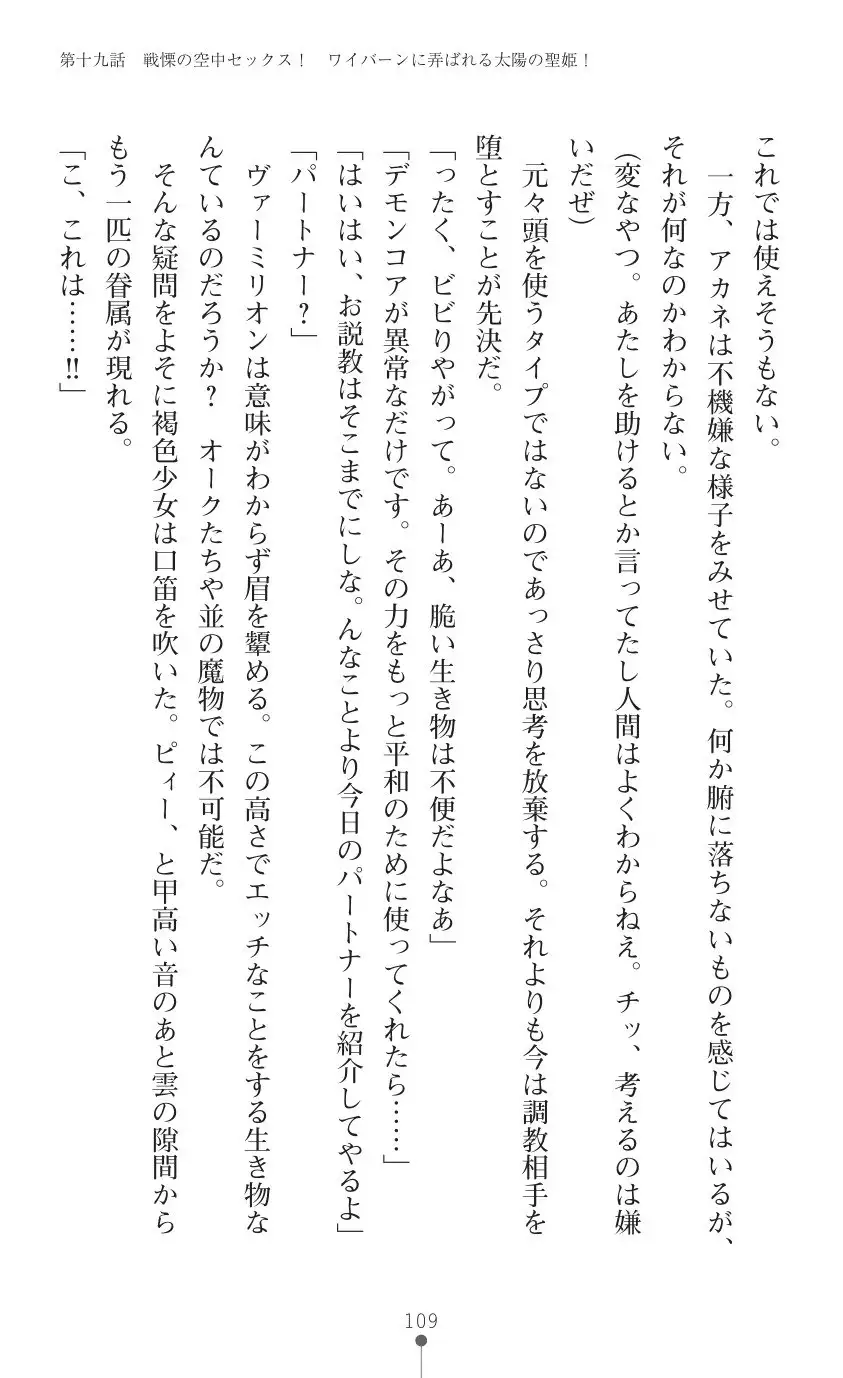 第十九話　戦慄の空中セックス！　ワイバーンに弄ばれる太陽の聖姫！
これでは使えそうもない。
　一方、アカネは不機嫌な様子をみせていた。何か腑に落ちないものを感じてはいるが、
それが何なのかわからない。
（変なやつ。あたしを助けるとか言ってたし人間はよくわからねえ。チッ、考えるのは嫌
いだぜ）
　元々頭を使うタイプではないのであっさり思考を放棄する。それよりも今は調教相手を
堕とすことが先決だ。
「ったく、ビビりやがって。あーあ、脆い生き物は不便だよなあ」
「デモンコアが異常なだけです。その力をもっと平和のために使ってくれたら……」
「はいはい、お説教はそこまでにしな。んなことより今日のパートナーを紹介してやるよ」
「パートナー？」
　ヴァーミリオンは意味がわからず眉を顰める。この高さでエッチなことをする生き物な
んているのだろうか？　オークたちや並の魔物では不可能だ。
　そんな疑問をよそに褐色少女は口笛を吹いた。ピィー、と甲高い音のあと雲の隙間から
もう一匹の眷属が現れる。
「こ、これは……‼」
109